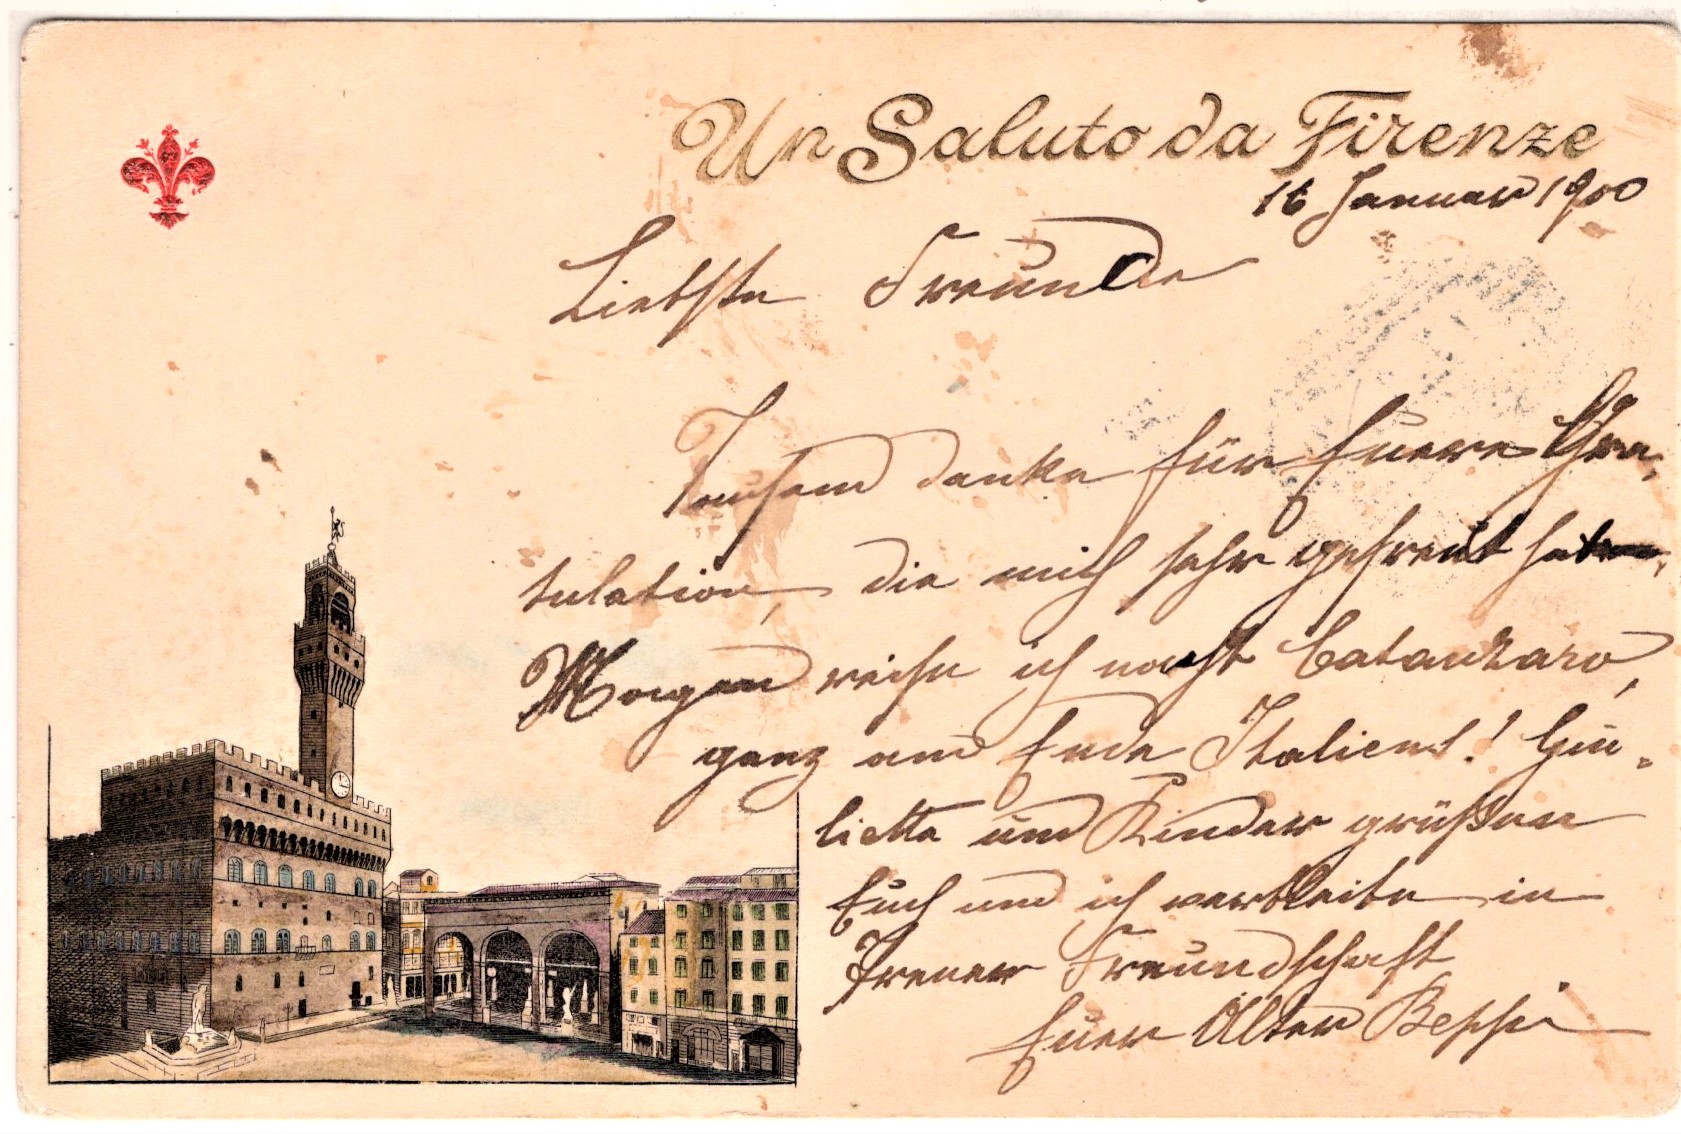 Un Saluto da Firenze
16 Januar 1900
Liebste Freunde
Tausend danke für Euere Gra-
tulation, die mich sehr gefreut hat.
Morgen reise ich nach Catanzaro,
ganz am Ende Italiens! Giu-
lietta und Kinder grüßen
Euch und ich verbleibe in
Treuer Freundschaft
Euer Alter Beppi